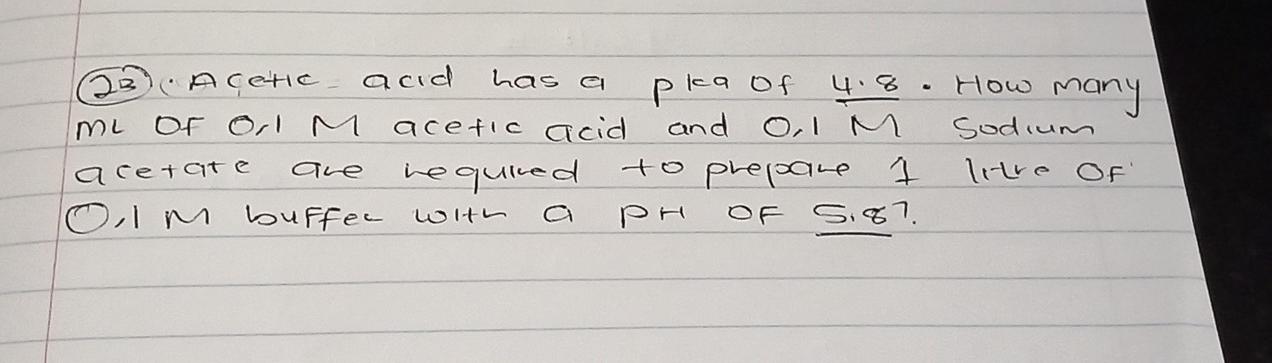 23. Acetic acid has a pka of 4.8. How many
mL OF 0,1 M acetic acid and 0,1 M Sodium
acetate are required to prepare 1 litre OF
0,1 M buffer with a PH OF 5.8?.